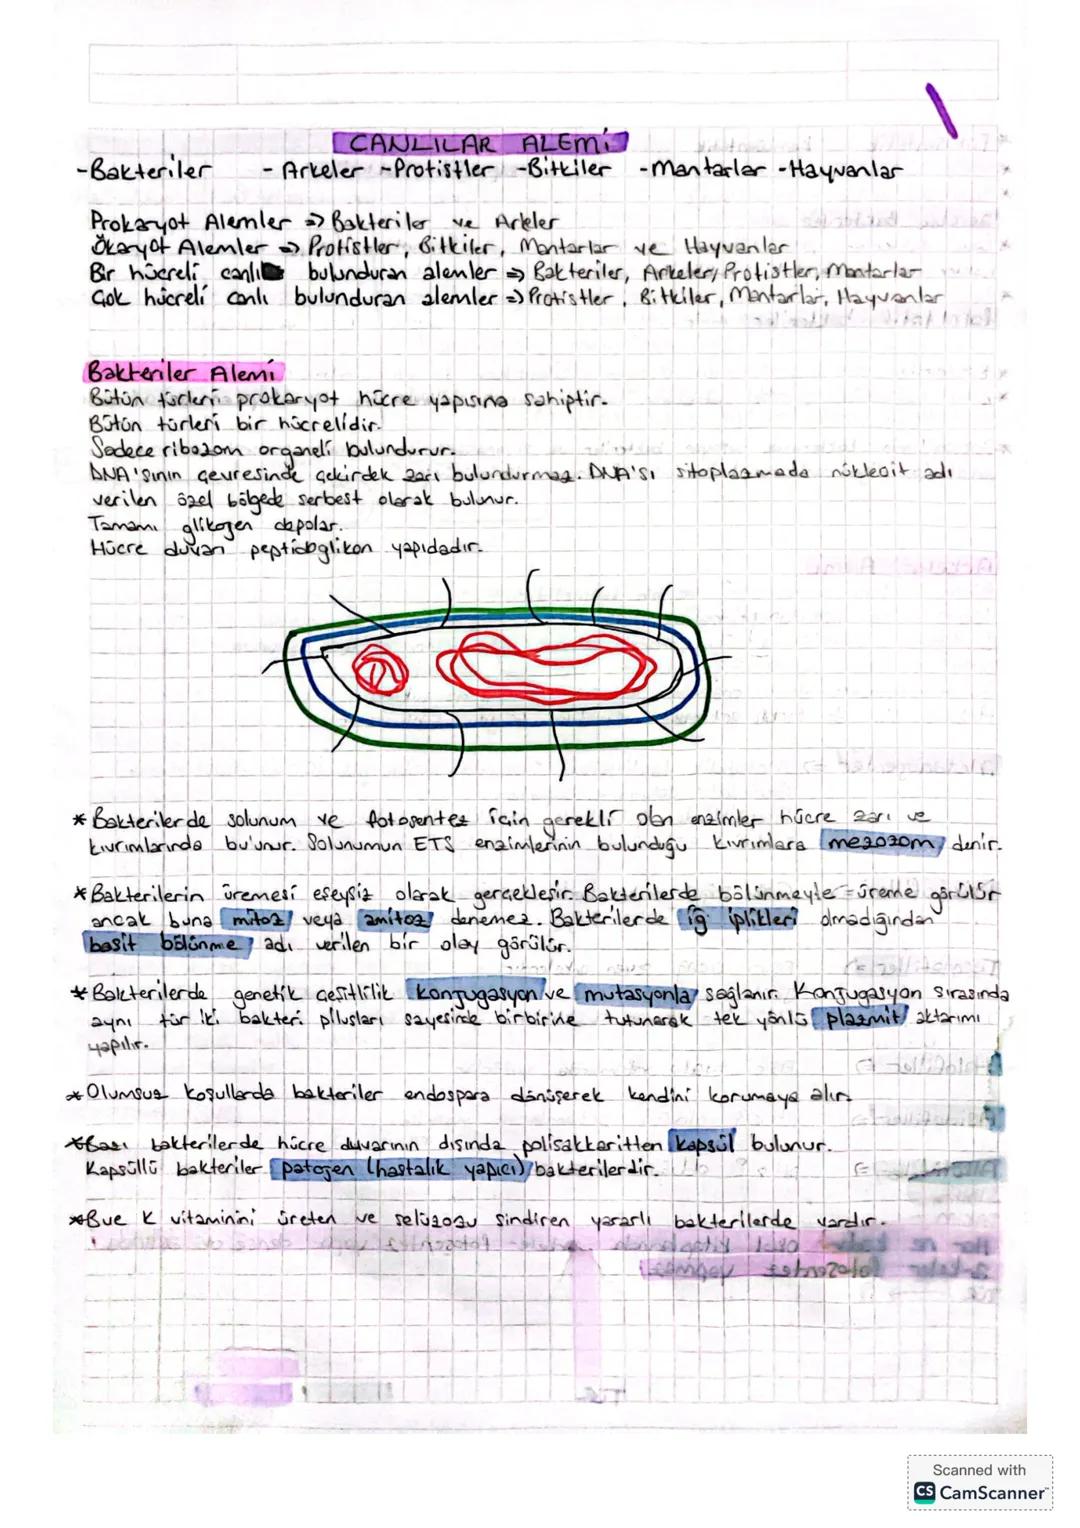 CANLILAR ALEMİ
-Bakteriler - Arkeler -Protistler -Bitkiler -Mantarlar -Hayvanlar
Prokaryot Alemler => Bakteriler ve Arkeler
Ökaryot Alemler => Protistler, Bitkiler, Mantarlar ve Hayvanlar
Bir hücreli canlı bulunduran alemler => Bakteriler, Arkeler, Protistler, Mantarlar
Çok hücreli canlı bulunduran alemler => Protistler, Bitkiler, Mantarlar, Hayvanlar
Bakteriler Alemi
Bütün türleri prokaryot hücre yapısına sahiptir.
Bütün türleri bir hücrelidir.
Sadece ribozom organeli bulundurur.
DNA'sının çevresinde çekirdek zarı bulundurmaz. DNA'sı sitoplazmada nükleoit adı
verilen özel bölgede serbest olarak bulunur.
Tamamı glikojen depolar.
Hücre duvarı peptidoglikan yapıdadır.
* Bakterilerde solunum ve fotosentez için gerekli olan enzimler hücre zarı ve
kıvrımlarında bulunur. Solunumun ETS enzimlerinin bulunduğu kıvrımlara mezozom denir.
* Bakterilerin üremesi eşeysiz olarak gerçekleşir. Bakterilerde bölünmeyle üreme görülür
ancak buna mitoz veya amitoz denemez. Bakterilerde iğ iplikleri olmadığından
basit bölünme adı verilen bir olay görülür.
* Bakterilerde genetik çeşitlilik konjugasyon ve mutasyonla sağlanır. Konjugasyon sırasında
aynı tür iki bakteri pilusları sayesinde birbirine tutunarak tek yönlü plazmit aktarımı
yapılır.
* Olumsuz koşullarda bakteriler endospora dönüşerek kendini korumaya alır.
* Bazı bakterilerde hücre duvarının dışında polisakkaritten kapsül bulunur.
Kapsüllü bakteriler patojen (hastalık yapıcı) bakterilerdir.
* B ve K vitaminini üreten ve selülozu sindiren yararlı bakterilerde vardır.
Scanned with
CS CamScanner